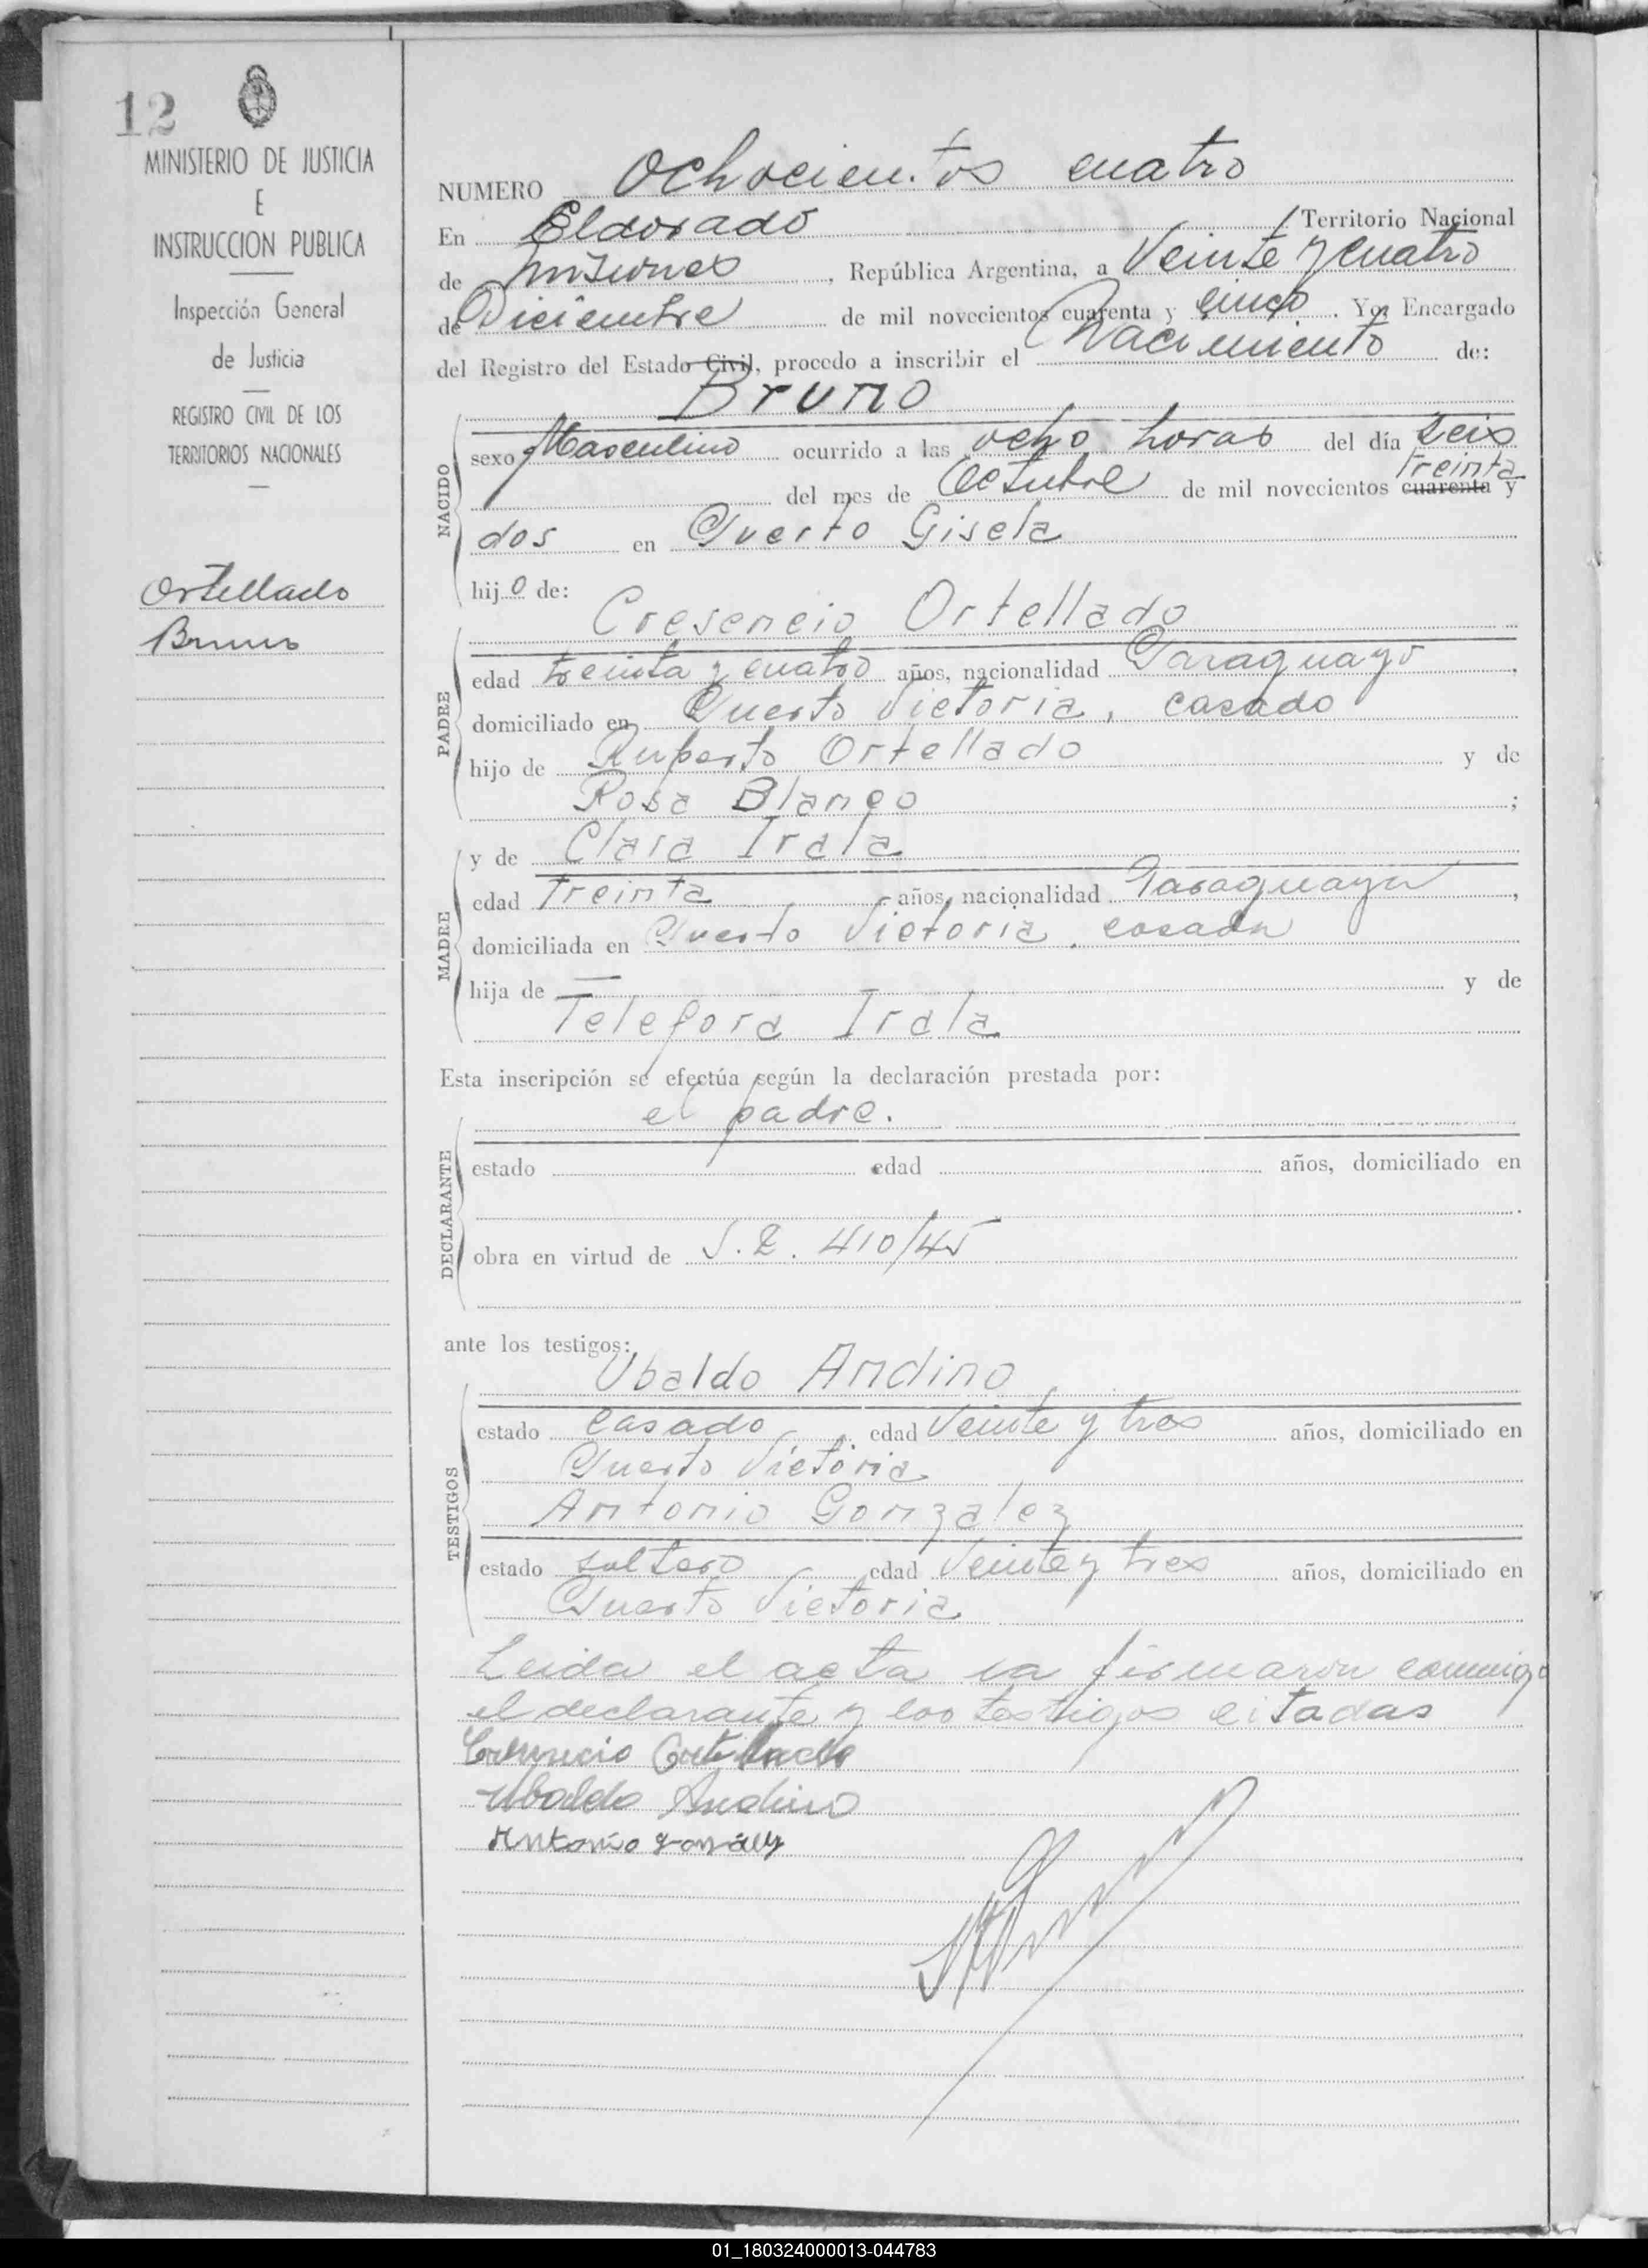 12
MINISTERIO DE JUSTICIA
E
INSTRUCCION PUBLICA
Inspección General
de Justicia
REGISTRO CIVIL DE LOS
TERRITORIOS NACIONALES
Ortellado
Bruno
NUMERO Ochocientos cuatro
En Eldorado / Territorio Nacional
de Misiones, República Argentina, a Veinte y cuatro
de Diciembre de mil novecientos cuarenta y cinco. Yo, Encargado
del Registro del Estado Civil, procedo a inscribir el Nacimiento de:
Bruno
NACIDO
sexo Masculino ocurrido a las ocho horas del día seis
treinta
del mes de Octubre de mil novecientos cuarenta y
dos en Puerto Gisela
hijo de:
Cresencio Ortellado
PADRE
edad treinta y cuatro años, nacionalidad Paraguayo,
domiciliado en Puerto Victoria, casado
hijo de Ruperto Ortellado y de
Rosa Blanco;
y de Clara Irala
MADRE
edad treinta años, nacionalidad Paraguaya,
domiciliada en Puerto Victoria, casada
hija de — y de
Telefora Irala
Esta inscripción se efectúa según la declaración prestada por:
el padre.
DECLARANTE
estado edad años, domiciliado en
obra en virtud de S.E. 410/45
ante los testigos:
Ubaldo Andino
TESTIGOS
estado casado edad Veinte y tres años, domiciliado en
Puerto Victoria
Antonio Gonzalez
estado soltero edad Veinte y tres años, domiciliado en
Puerto Victoria
Leida el acta la firmaron conmigo
el declarante y los testigos citadas
Cresencio Ortellado
Ubaldo Andino
Antonio Gonzalez
01_180324000013-044783